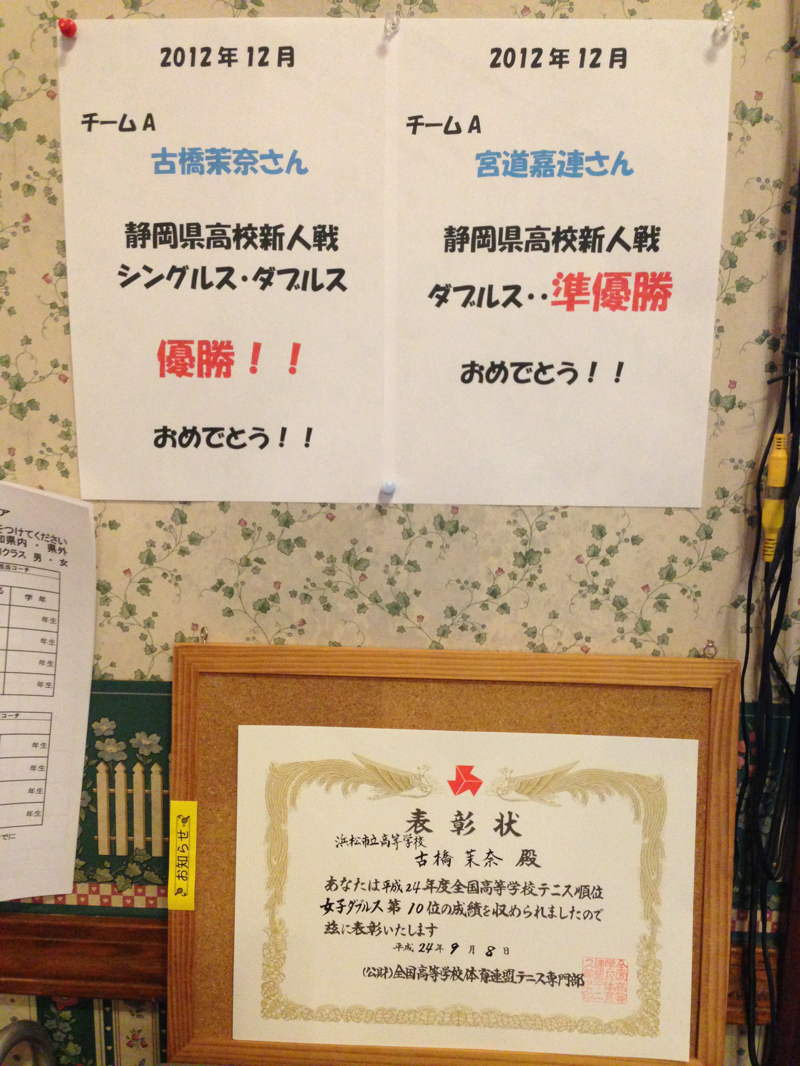 2012年12月
チームA
古橋茉奈さん
静岡県高校新人戦
シングルス・ダブルス
優勝！！
おめでとう！！
2012年12月
チームA
宮道嘉連さん
静岡県高校新人戦
ダブルス・・準優勝
おめでとう！！
をつけてください
県内・県外
クラス 男・女
担当コーチ
学年
年生
年生
年生
年生
コーチ
年生
年生
年生
年生
でに
お知らせ
表彰状
浜松市立高等学校
古橋茉奈 殿
あなたは平成24年度全国高等学校テニス順位
女子ダブルス第10位の成績を収められましたので
茲に表彰いたします
平成24年9月8日
(公財)全国高等学校体育連盟テニス専門部